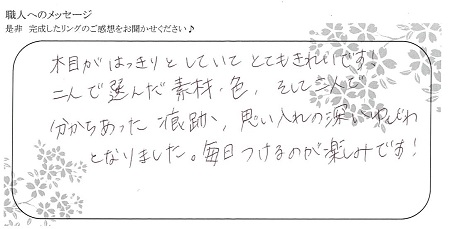 職人へのメッセージ
是非 完成したリングのご感想をお聞かせください♪
木目がはっきりとしていてとてもきれいです!
二人で選んだ素材・色、そして二人で
分かちあった痕跡、思い入れの深いゆびわ
となりました。毎日つけるのが楽しみです!